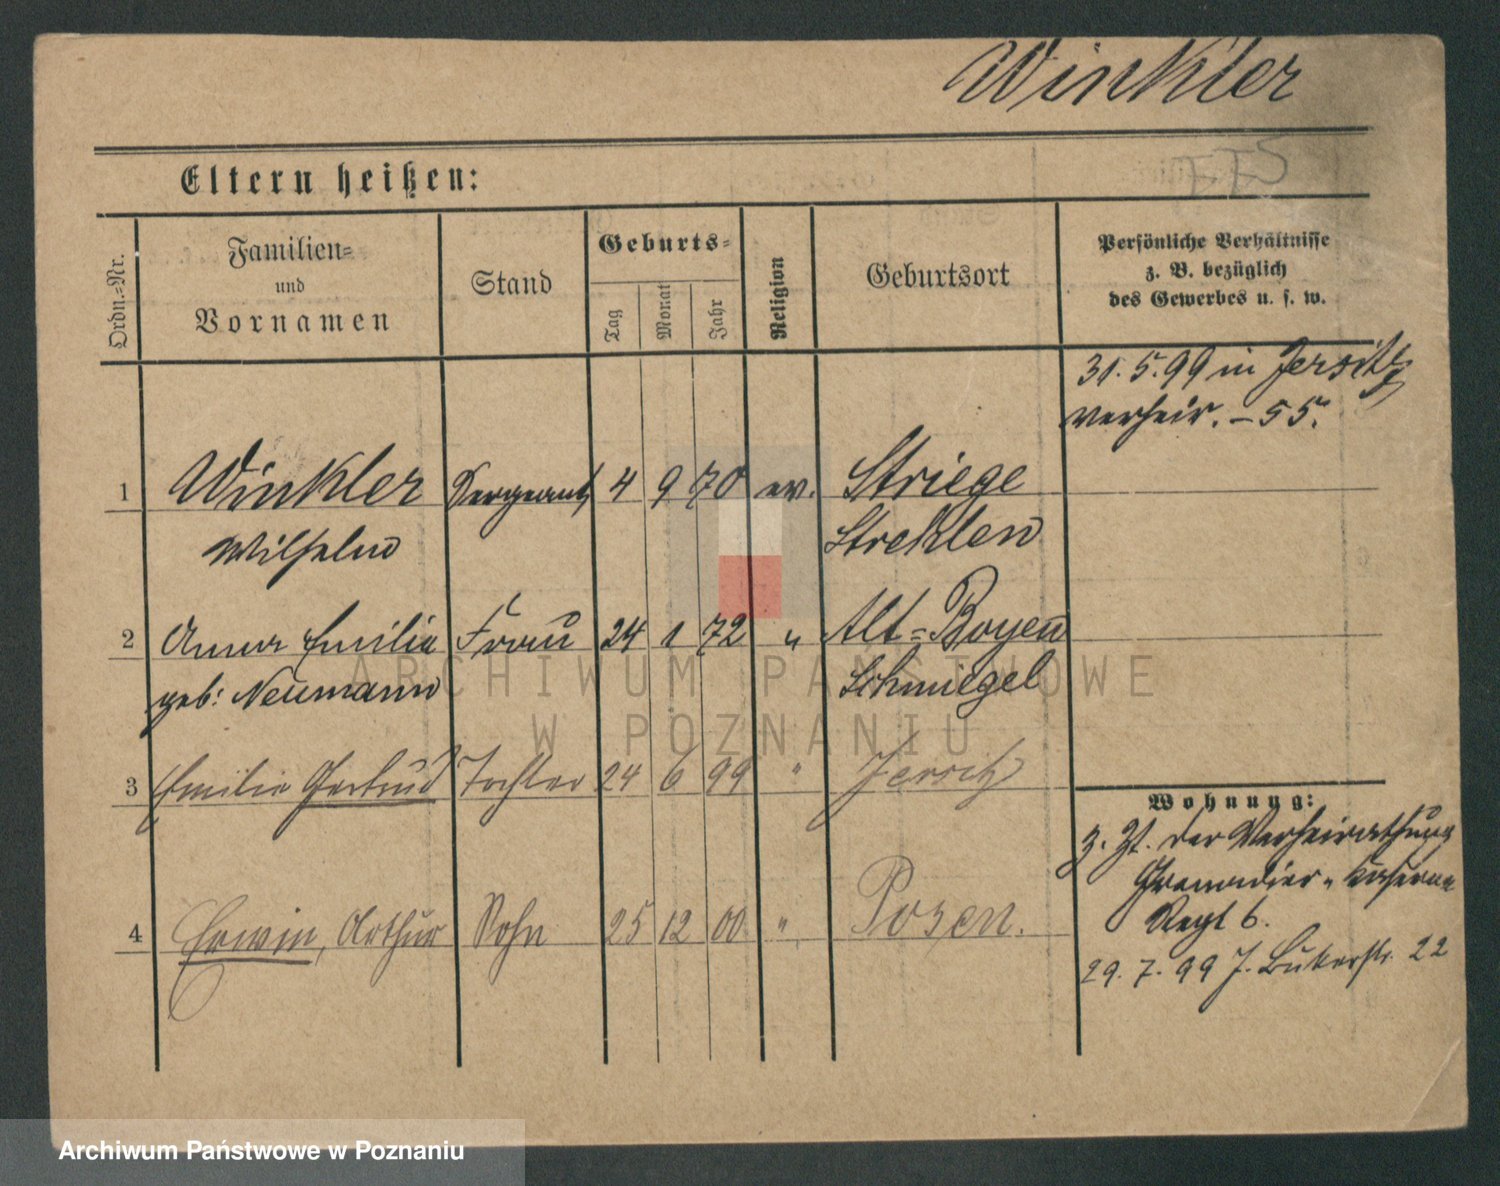 Winkler
Eltern heißen:
Ordn.=Nr.
Familien=
und
Vornamen
Stand
Geburts=
Tag
Monat
Jahr
Religion
Geburtsort
Persönliche Verhältnisse
z. B. bezüglich
des Gewerbes u. s. w.
31. 5. 99 in Jersitz
verheir. – 55.
1 Winkler Sergeant 4 9 70 ev. Striege
Wilhelm Strehlen
2 Anna Emilie Frau 24 1 72 " Alt=Boyen
geb: Neumann Schmiegel
3 Emilie Gertrud Tochter 24 6 99 " Jersitz
Wohnung:
z. Zt. der Verheirathung
Grenadier-Kaserne
4 Erwin, Arthur Sohn 25 12 00 " Posen.
Regt 6.
29. 7. 99 J. Bukerstr. 22
ARCHIWUM PAŃSTWOWE
W POZNANIU
Archiwum Państwowe w Poznaniu